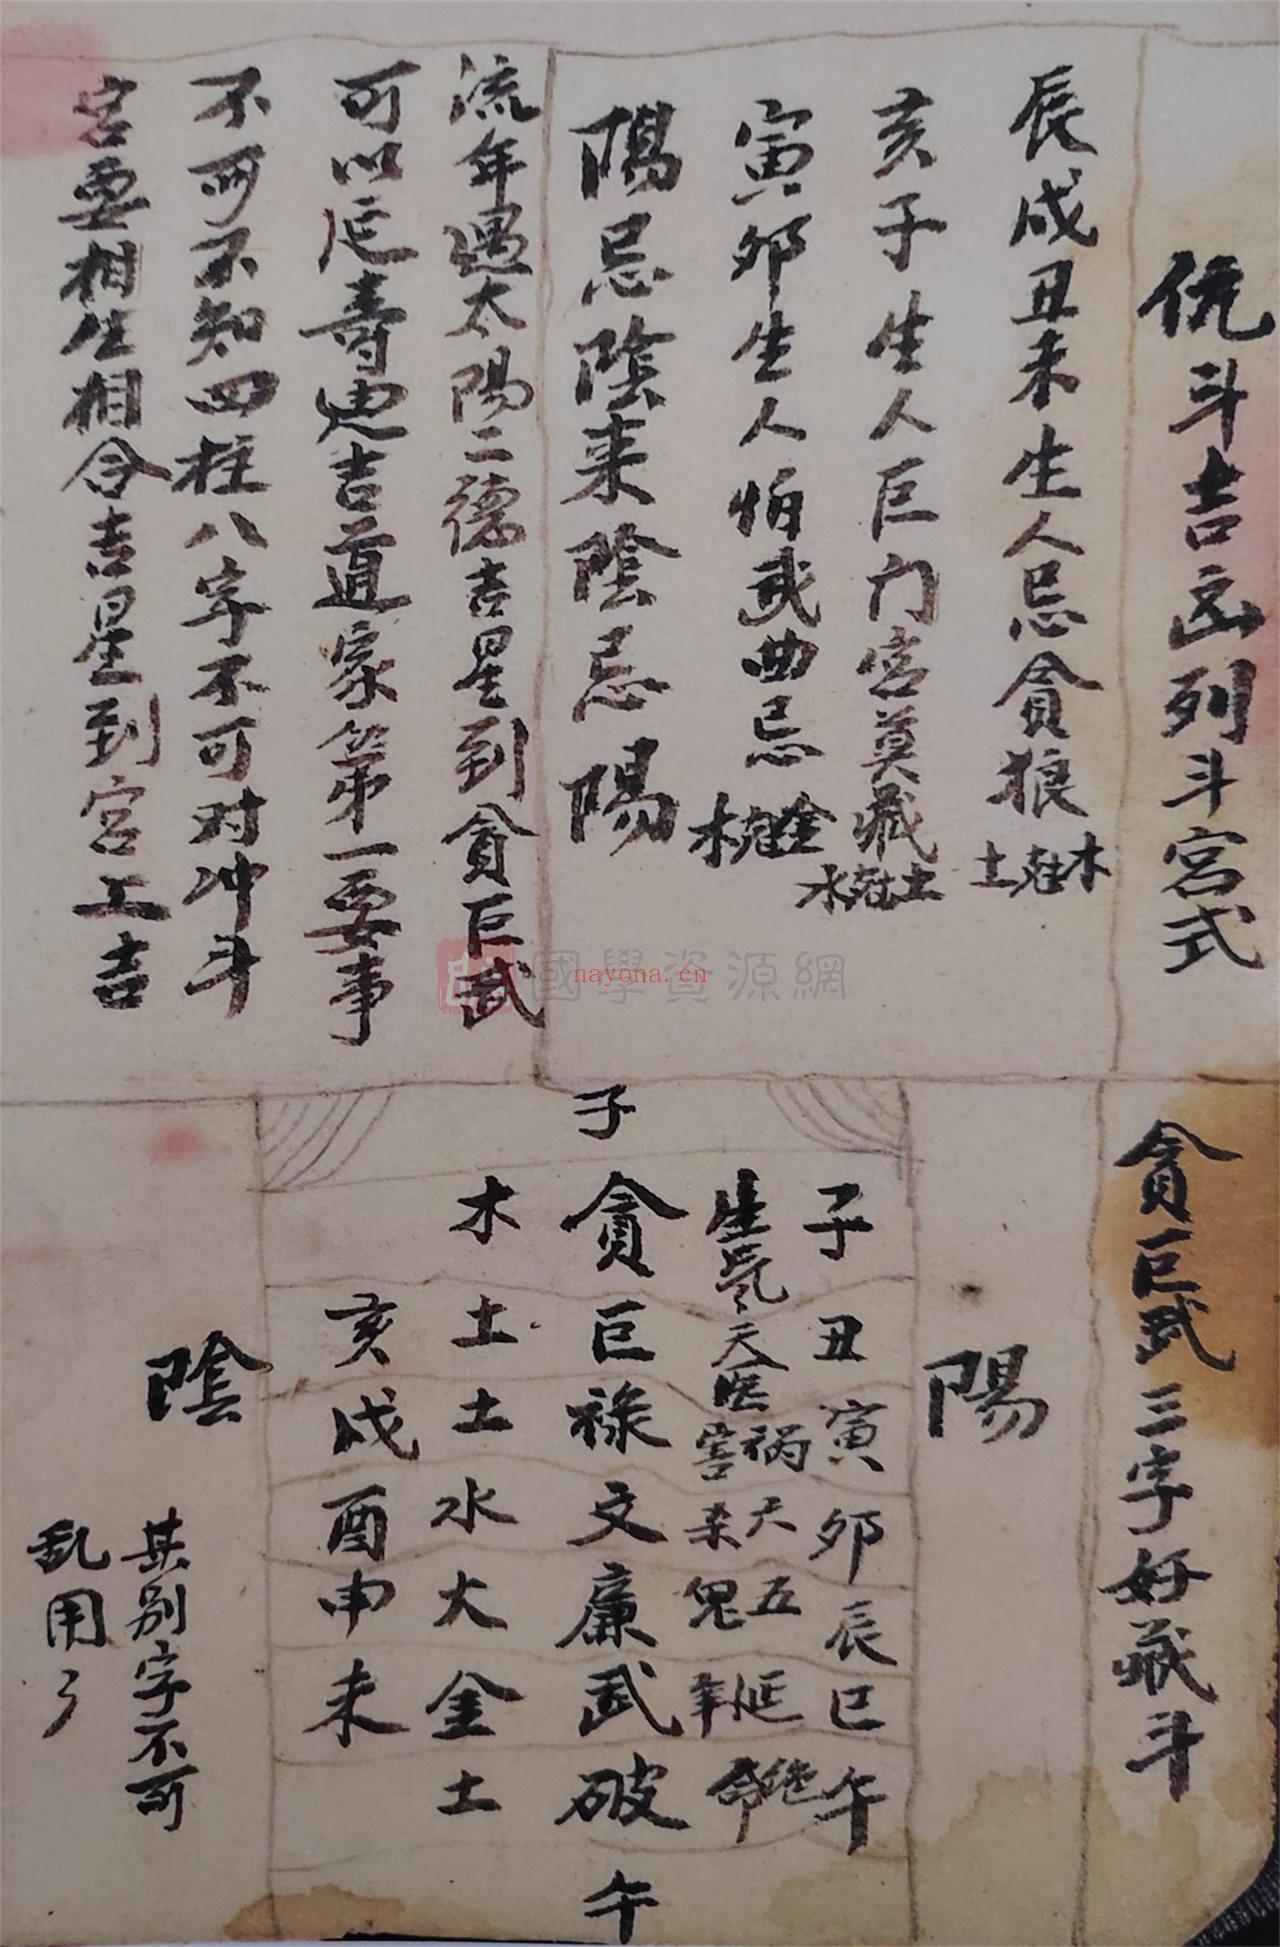 仛斗吉凶列斗宮式
辰戌丑未生人忌貪狼
木尅土
亥子生人巨门宮莫藏
土尅水
寅卯生人怕武曲忌
金尅木
陽忌陰来陰忌陽
流年遇太陽二德吉星到貪巨武
可以延壽迎吉道家第一要事
不可不知四柱八字不可对冲斗
宮要相生相合吉星到宮上吉
國學資源網
nayona.cn
貪巨武三字好藏斗
陽
子
子丑寅卯辰巳午
生気天医祸害天杀五鬼延年绝命
貪巨禄文廉武破
木土土水大金土
亥戌酉申未
午
陰
其别字不可
乱用了